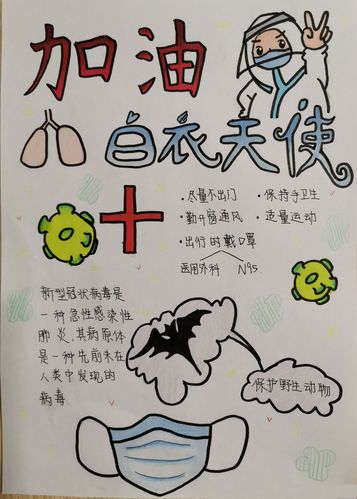 加油
白衣天使
·尽量不出门
·保持手卫生
·勤开窗通风
·适量运动
·出行时戴口罩
医用外科
N95
新型冠状病毒是
一种急性感染性
肺炎,其病原体
是一种先前未在
人类中发现的
病毒
保护野生动物